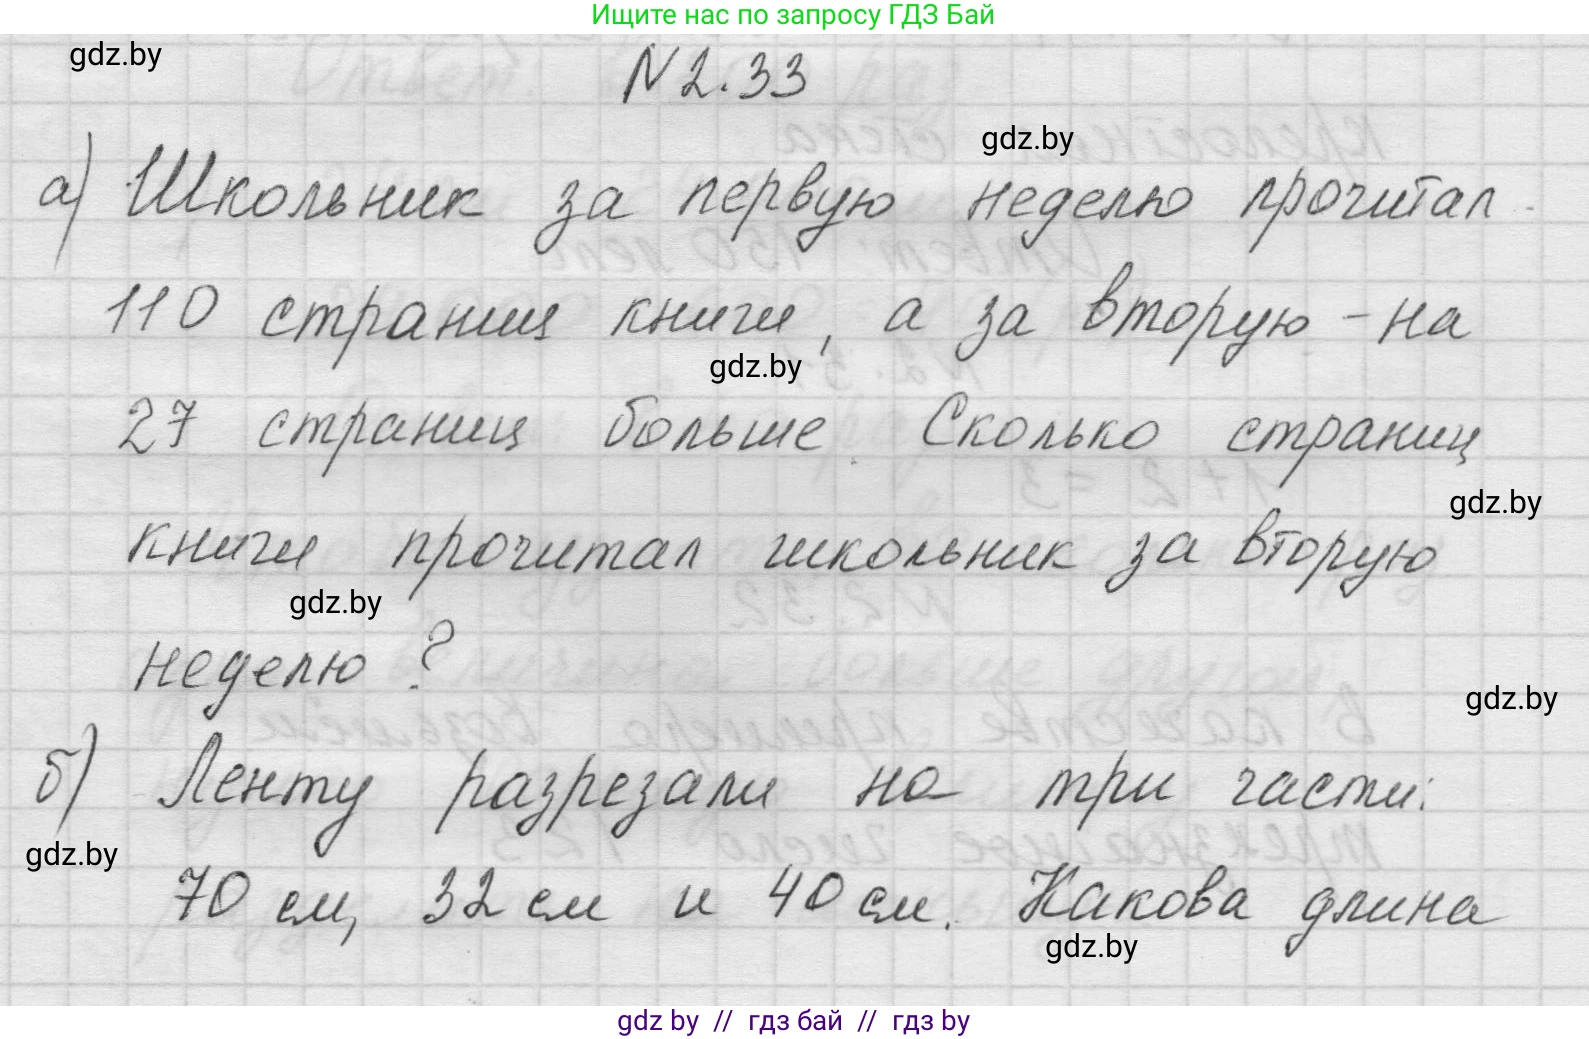 Ищите нас по запросу ГДЗ Бай
gdz.by
N 2.33
gdz.by
а) Школьник за первую неделю прочитал
110 страниц книги, а за вторую – на
gdz.by
27 страниц больше. Сколько страниц
gdz.by
книги прочитал школьник за вторую
gdz.by
неделю?
gdz.by
б) Ленту разрезали на три части:
gdz.by
70 см, 32 см и 40 см. Какова длина
gdz.by
gdz by // гдз бай // гдз by